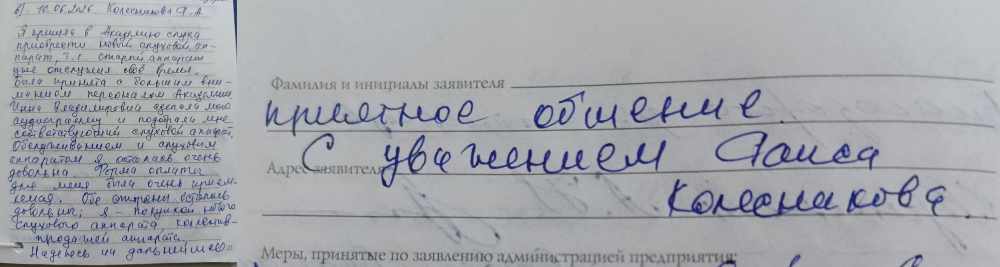 в) 10.06.2026. Колесникова Я.А
Я пришла в Академию слуха
приобрести новый слуховой ап-
парат, т.к. старый аппарат
уже отслужил своё время.
Была принята с большим вни-
манием персоналом Академии.
Инна Владимировна сделала мою
аудиограмму и подобрала мне
соответствующий слуховой аппарат.
Обслуживанием и слуховым
аппаратом я осталась очень
довольна. Форма оплаты
для меня была очень прием-
лемая. Обе стороны остались
довольны; я - покупкой нового
слухового аппарата, коллектив-
продажей аппарата.
Надеюсь на дальнейшее
Фамилия и инициалы заявителя
приятное общение.
Адрес заявителя
С уважением Таиса
Колесникова.
Меры, принятые по заявлению администрацией предприятия: